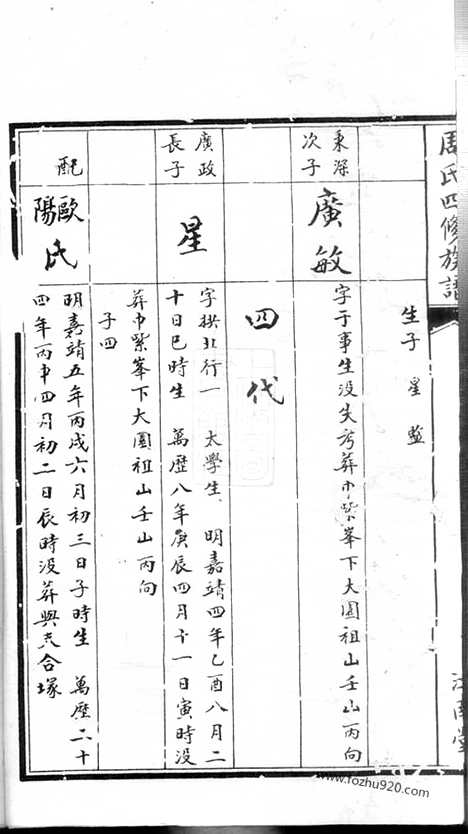 周氏四修族譜
生子 星 藍
秉深次子
廣敏
字于事生没失考葬巾紫峯下大園祖山壬山丙向
四代
廣政長子
星
字拱北行一 太學生 明嘉靖四年乙酉八月二
十日巳時生 萬歷八年庚辰四月十一日寅時没
葬巾紫峯下大園祖山壬山丙向
子四
配
歐陽氏
明嘉靖五年丙戌六月初三日子時生 萬歷二十
四年丙申四月初二日辰時没葬與夫合塚
www.fozhu920.com